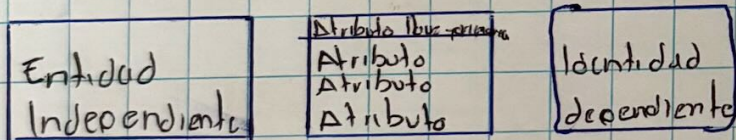 Entidad
Independiente
Atributo llave primaria
Atributo
Atributo
Atributo
Identidad
dependiente